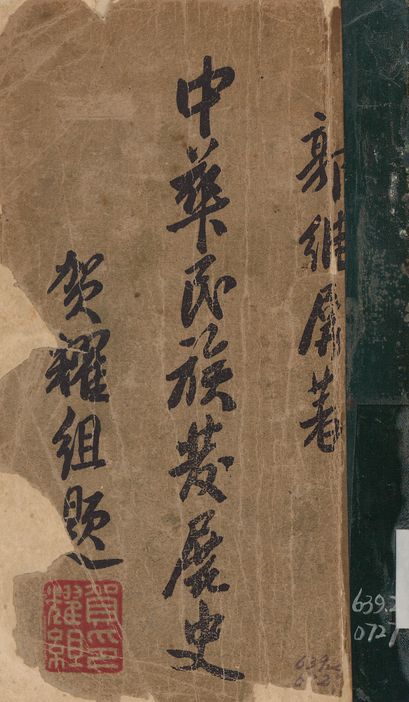 郭維屏著
中華民族發展史
賀耀組題
賀印
耀組
639.2
0727
639.2